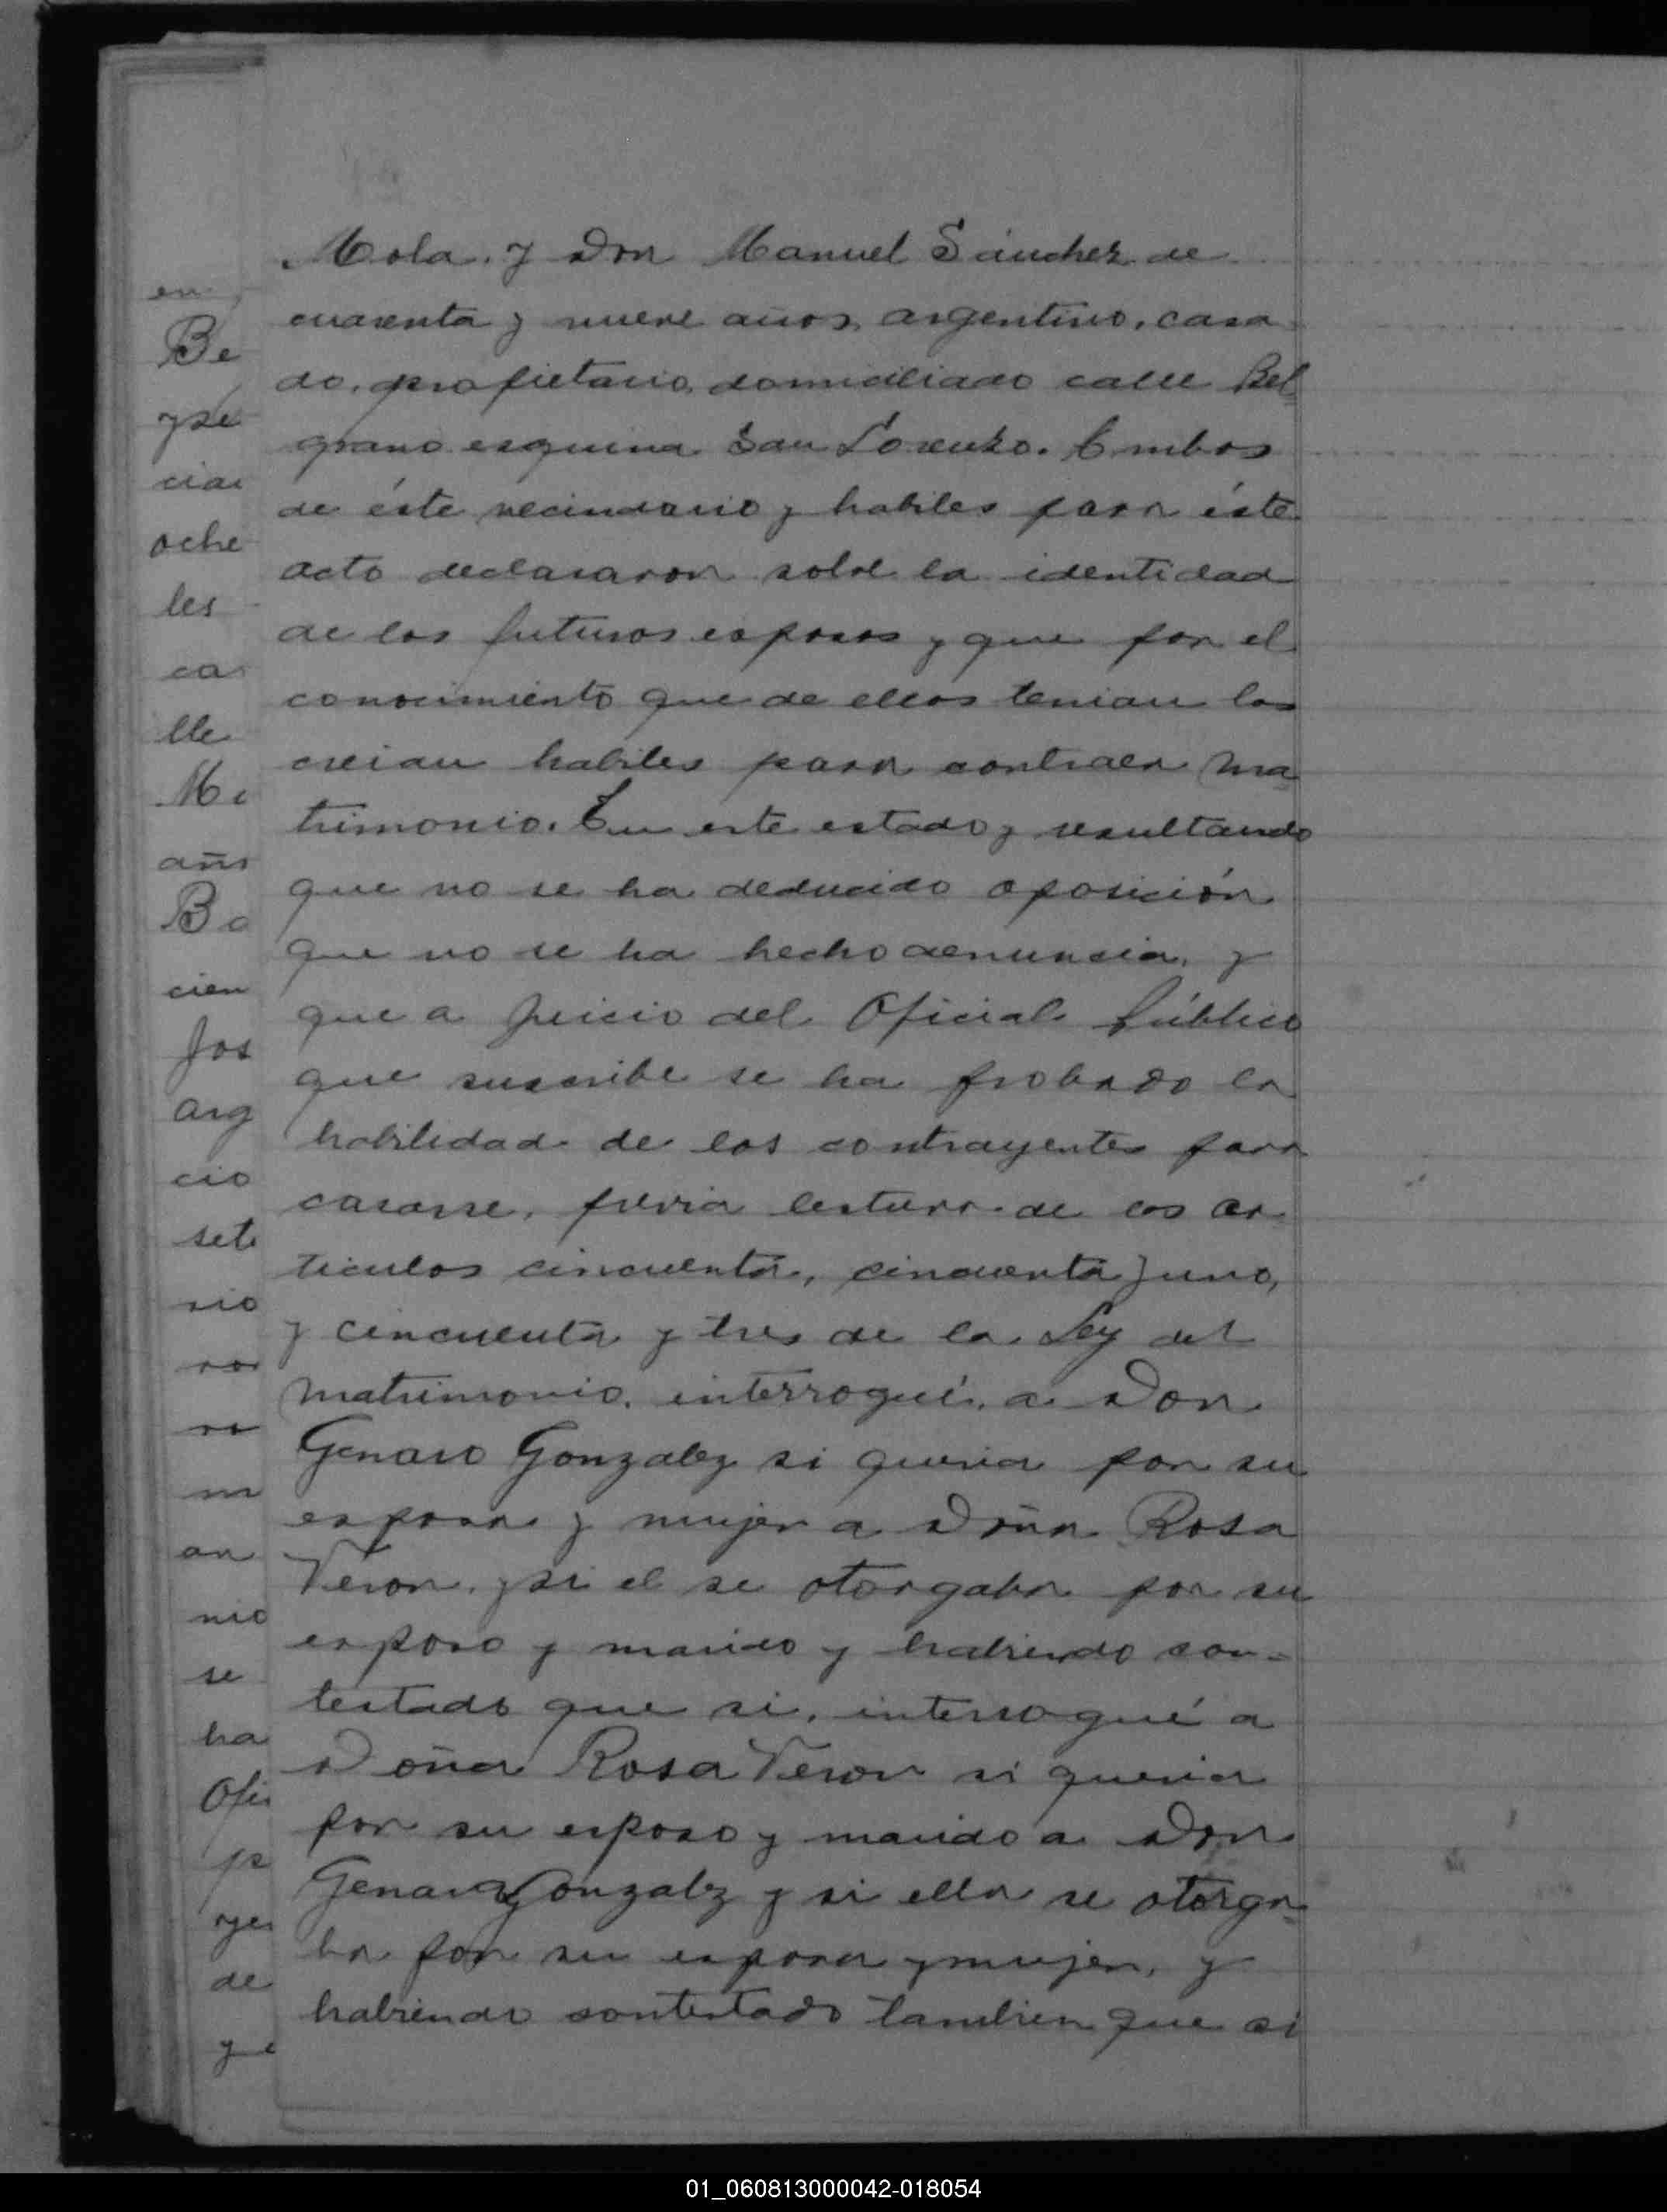 Mola. y Don Manuel Sánchez de
cuarenta y nueve años, argentino, casa
do, propietario, domiciliado calle Bel
grano esquina San Lorenzo. Ambos
de éste vecindario y habiles para éste
acto declararon sobre la identidad
de los futuros esposos y que por el
conocimiento que de ellos tenian los
creian habiles para contraer ma
trimonio. En este estado y resultando
que no se ha deducido oposición
que no se ha hecho denuncia, y
que a juicio del Oficial Público
que suscribe se ha probado la
habilidad de los contrayentes para
casarse, previa lectura de los ar
ticulos cincuenta, cincuenta y uno,
y cincuenta y tres de la Ley del
matrimonio, interrogué, a Don
Genaro Gonzalez si queria por su
esposa y mujer a Doña Rosa
Veron, y si el se otorgaba por su
esposo y marido y habiendo con-
testado que si, interrogué a
Doña Rosa Veron si queria
por su esposo y marido a Don
Genaro Gonzalez y si ella se otorga
ba por su esposa y mujer, y
habiendo contestado tambien que si
en
Be
y se
cia
oche
les
ca
lle
Mi
año
Ba
cien
Jos
arg
cio
sete
rio
ron
ro
m
an
nio
se
ha
Ofi
p
yer
de
y e
01_060813000042-018054